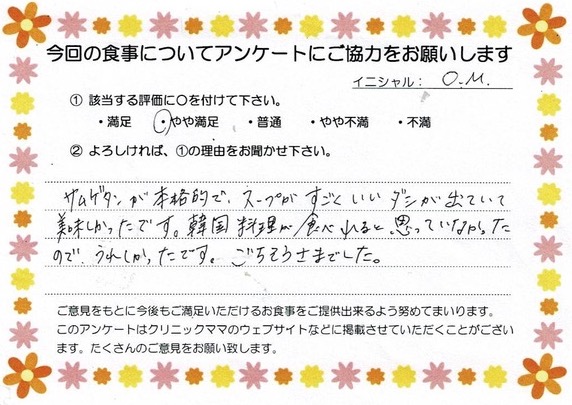 今回の食事についてアンケートにご協力をお願いします
イニシャル： O.M.
① 該当する評価に○を付けて下さい。
・満足 ・やや満足 ・普通 ・やや不満 ・不満
② よろしければ、①の理由をお聞かせ下さい。
サムゲタンが本格的で、スープがすごくいいダシが出ていて
美味しかったです。韓国料理が食べれると思っていなかった
ので、うれしかったです。ごちそうさまでした。
ご意見をもとに今後もご満足いただけるお食事をご提供出来るよう努めてまいります。
このアンケートはクリニックママのウェブサイトなどに掲載させていただくことがござい
ます。たくさんのご意見をお願い致します。